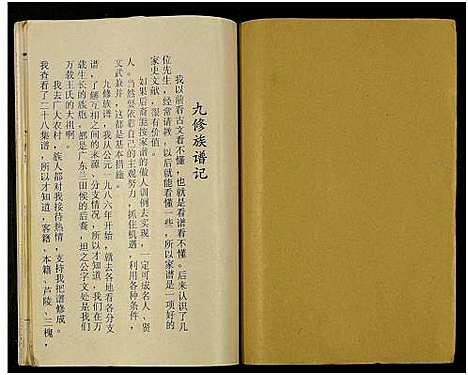 九修族谱记
我以前看古文看不懂，也就是看谱看不懂。后来认识了几
位先生，经常请教，以后就能看懂一些，所以家谱是一项好的
家史文献，很有价值。
如果后裔能按家谱的做人训例去实现，一定可成名人、贤
人。当然坚依彩自己的主观努力，抓住机遇，利用各种条件，
文武兼并，这都是基本措施。
九修族谱，我从公元一九八六年开始，就去各地看各分支
谱，了解互相之间的来踪、分支情况，所以才知道，我们在万
载生长的族胞，都是广东三田候的后裔，坦之公字文处是我们
万载王氏的大祖啊。
我去广大农村，族人都对我接待热情，支持我把谱修成。
我查看了二十八集谱，所以才知道，客籍、本籍、芦陵、三槐、